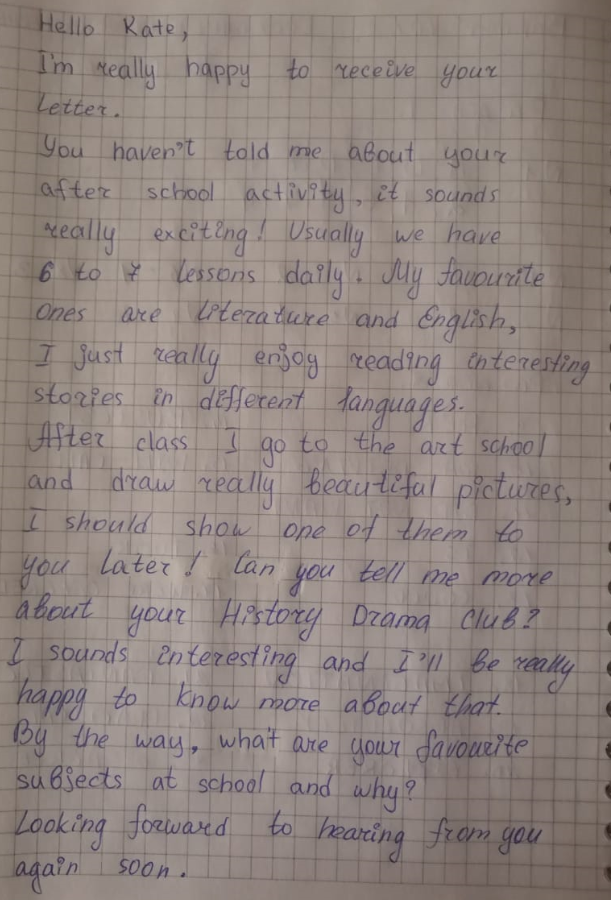 Hello Kate,
I'm really happy to receive your
letter.
You haven't told me about your
after school activity, it sounds
really exciting! Usually we have
6 to 7 lessons daily. My favourite
ones are literature and English,
I just really enjoy reading interesting
stories in different languages.
After class I go to the art school
and draw really beautiful pictures,
I should show one of them to
you later! Can you tell me more
about your History Drama Club?
I sounds interesting and I'll be really
happy to know more about that.
By the way, what are your favourite
subjects at school and why?
Looking forward to hearing from you
again soon.